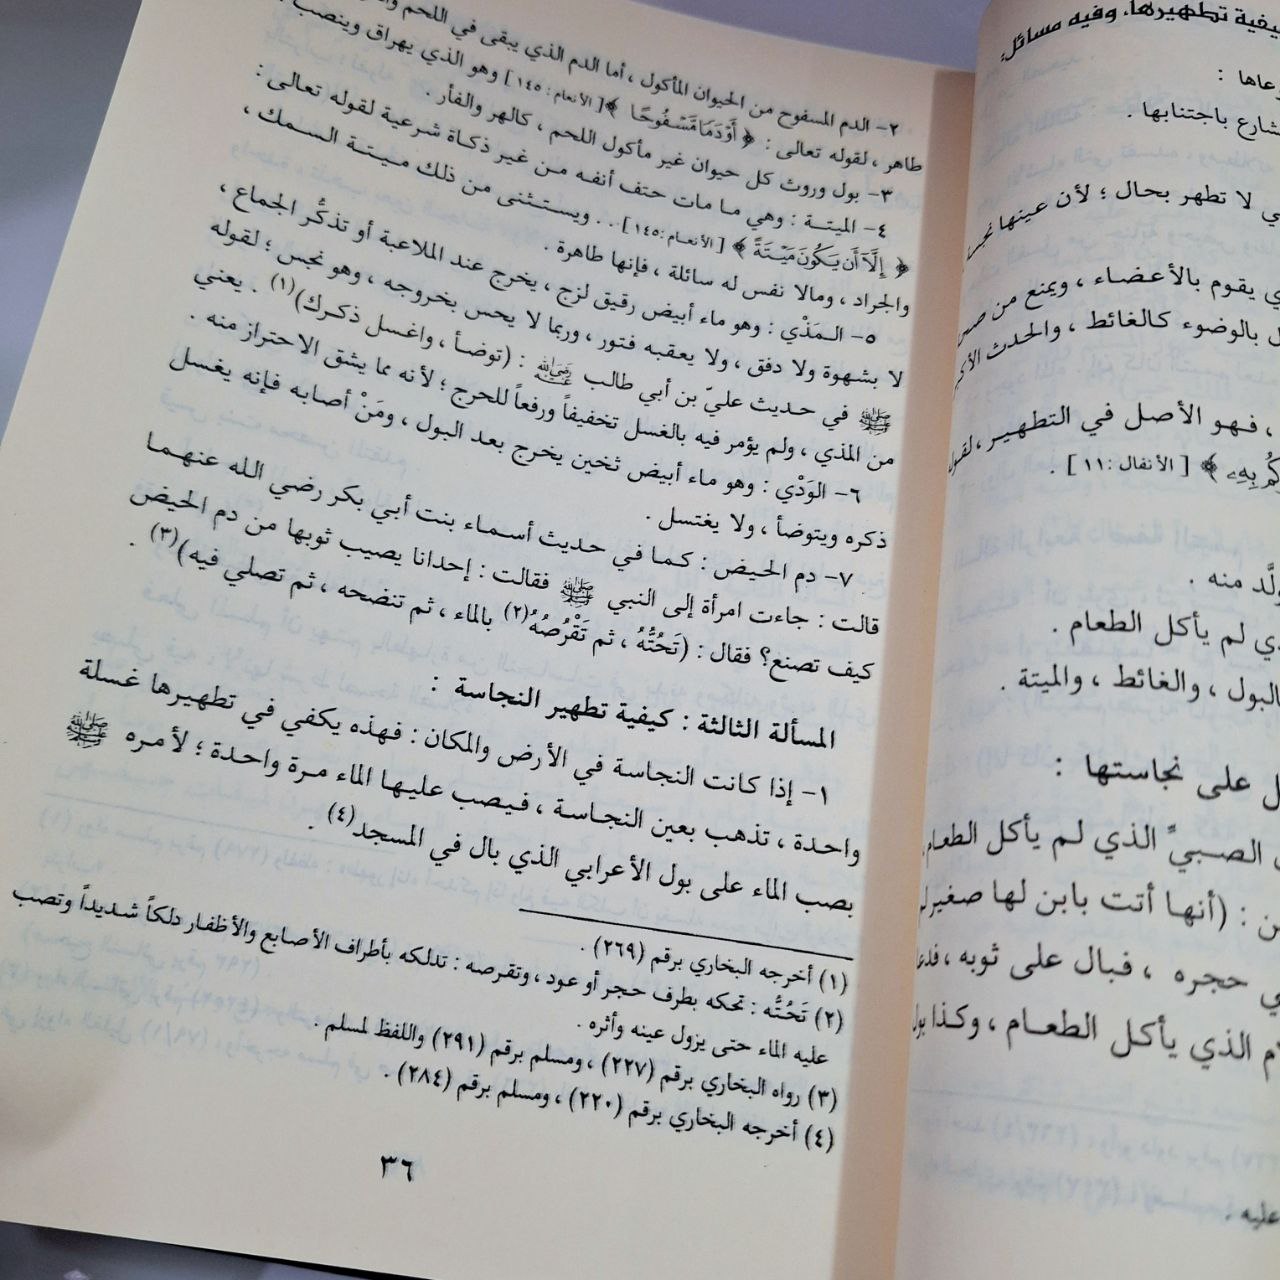 يفية تطهيرها، وفيه مسائل:
شارع باجتنابها .
ي لا تطهر بحال ؛ لأن عينها
ي يقوم بالأعضاء ، ويمنع من
ل بالوضوء كالغائط ، والحدث
، فهو الأصل في التطهير ،
كُم بِهِۦ ﴾ [ الأنفال : ١١ ] .
ولَّد منه .
ي لم يأكل الطعام .
البول ، والغائط ، والميتة .
ل على نجاستها :
الصبيِّ الذي لم يأكل الطعام
ن : (أنها أتت بابن لها صغير
ي حجره ، فبال على ثوبه ،
م الذي يأكل الطعام ، وكذا
عليه .
٢- الدم المسفوح من الحيوان المأكول ، أما الدم الذي يبقى في اللحم
طاهر ، لقوله تعالى : ﴿ أَوْ دَمًا مَّسْفُوحًا ﴾ [ الأنعام : ١٤٥ ] وهو الذي يهراق وينصب
٣- بول وروث كل حيوان غير مأكول اللحم ، كالهر والفأر .
٤- الميتة : وهي ما مات حتف أنفه من غير ذكاة شرعية لقوله تعالى :
﴿ إِلَّا أَن يَكُونَ مَيْتَةً ﴾ [ الأنعام : ١٤٥ ] . . ويستثنى من ذلك ميتة السمك ،
والجراد ، ومالا نفس له سائلة ، فإنها طاهرة .
٥- المَذْي : وهو ماء أبيض رقيق لزج ، يخرج عند الملاعبة أو تذكُّر الجماع ،
لا بشهوة ولا دفق ، ولا يعقبه فتور ، وربما لا يحس بخروجه ، وهو نجس ؛ لقوله
ﷺ في حديث عليّ بن أبي طالب رضي الله عنه : (توضأ ، واغسل ذكرك)(١) . يعني
من المذي ، ولم يؤمر فيه بالغسل تخفيفاً ورفعاً للحرج ؛ لأنه مما يشق الاحتراز منه .
٦- الوَدْي : وهو ماء أبيض ثخين يخرج بعد البول ، ومَنْ أصابه فإنه يغسل
ذكره ويتوضأ ، ولا يغتسل .
٧- دم الحيض : كما في حديث أسماء بنت أبي بكر رضي الله عنهما
قالت : جاءت امرأة إلى النبي ﷺ فقالت : إحدانا يصيب ثوبها من دم الحيض
كيف تصنع؟ فقال : (تَحُتُّهُ ، ثم تَقْرُصُهُ(٢) بالماء ، ثم تنضحه ، ثم تصلي فيه)(٣) .
المسألة الثالثة : كيفية تطهير النجاسة :
١- إذا كانت النجاسة في الأرض والمكان : فهذه يكفي في تطهيرها غسلة
واحدة ، تذهب بعين النجاسة ، فيصب عليها الماء مرة واحدة ؛ لأمره ﷺ
بصب الماء على بول الأعرابي الذي بال في المسجد(٤) .
(١) أخرجه البخاري برقم (٢٦٩) .
(٢) تَحُتُّه : تحكه بطرف حجر أو عود ، وتقرصه : تدلكه بأطراف الأصابع والأظفار دلكاً شديداً وتصب
عليه الماء حتى يزول عينه وأثره .
(٣) رواه البخاري برقم (٢٢٧) ، ومسلم برقم (٢٩١) واللفظ لمسلم .
(٤) أخرجه البخاري برقم (٢٢٠) ، ومسلم برقم (٢٨٤) .
٣٦